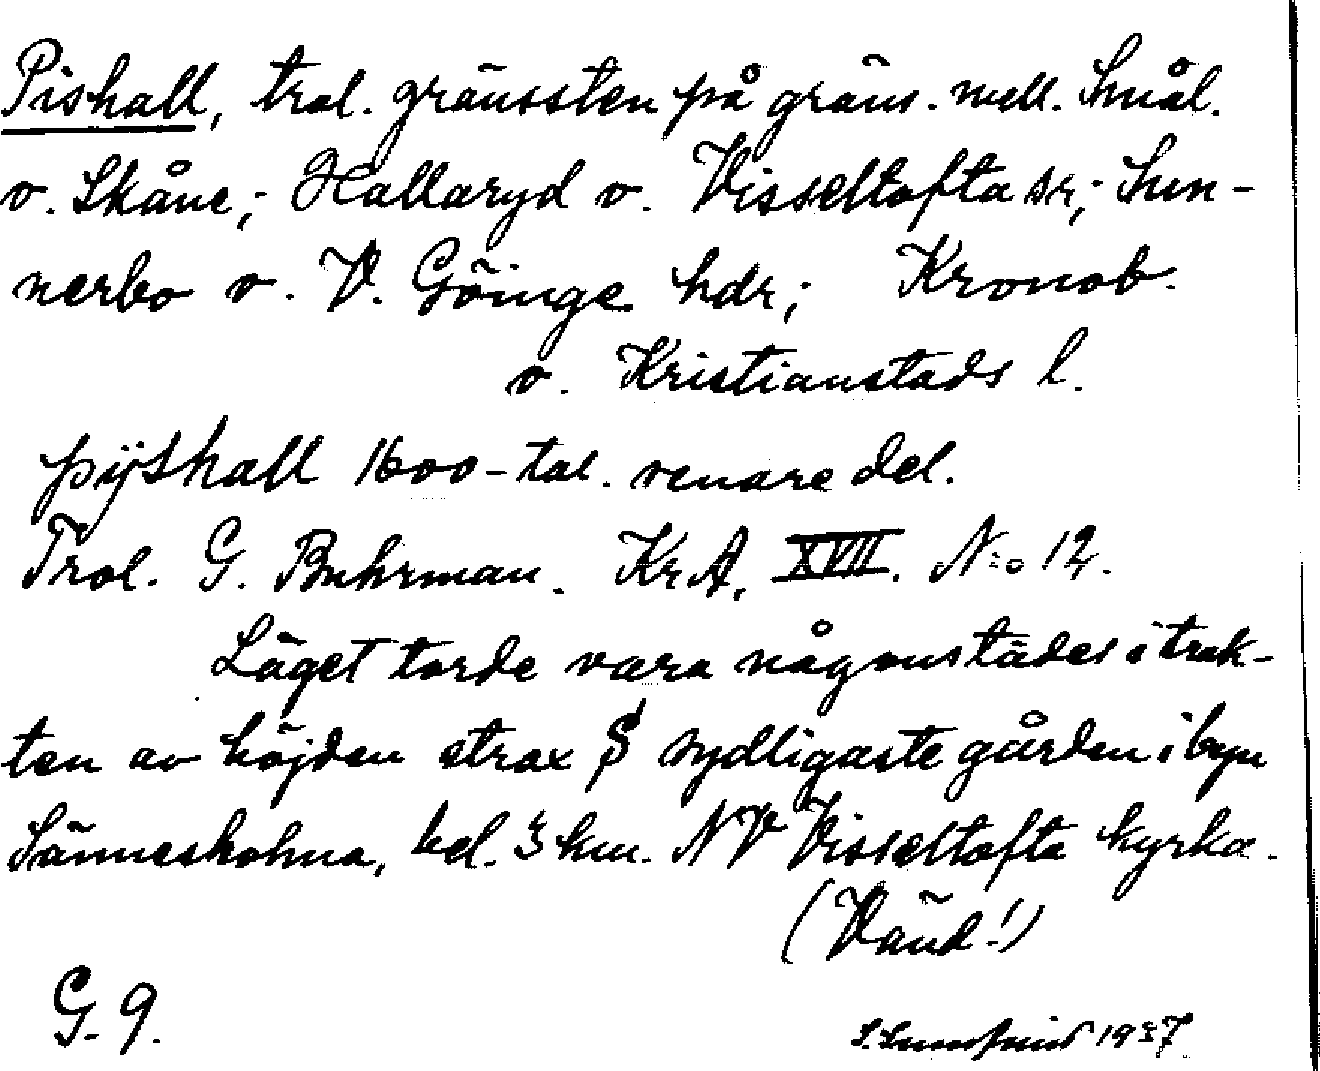 Pishall, trol. gränssten på gräns. mell. Smål.
o. Skåne; Hallaryd o. Visseltofta snr; Sun-
nerbo o. V. Göinge hdr; Kronob.
o. Kristianstads l.
pijshall 1600-tal. senare del.
Trol. G. Buhrman. KrA. XVII. N:o 12.
Läget torde vara någonstädes i trak-
ten av höjden strax S sydligaste gården i byn
Sänneskohna, bel. 3 km. NV Visseltofta kyrka.
(Vänd!)
G. 9.
1937